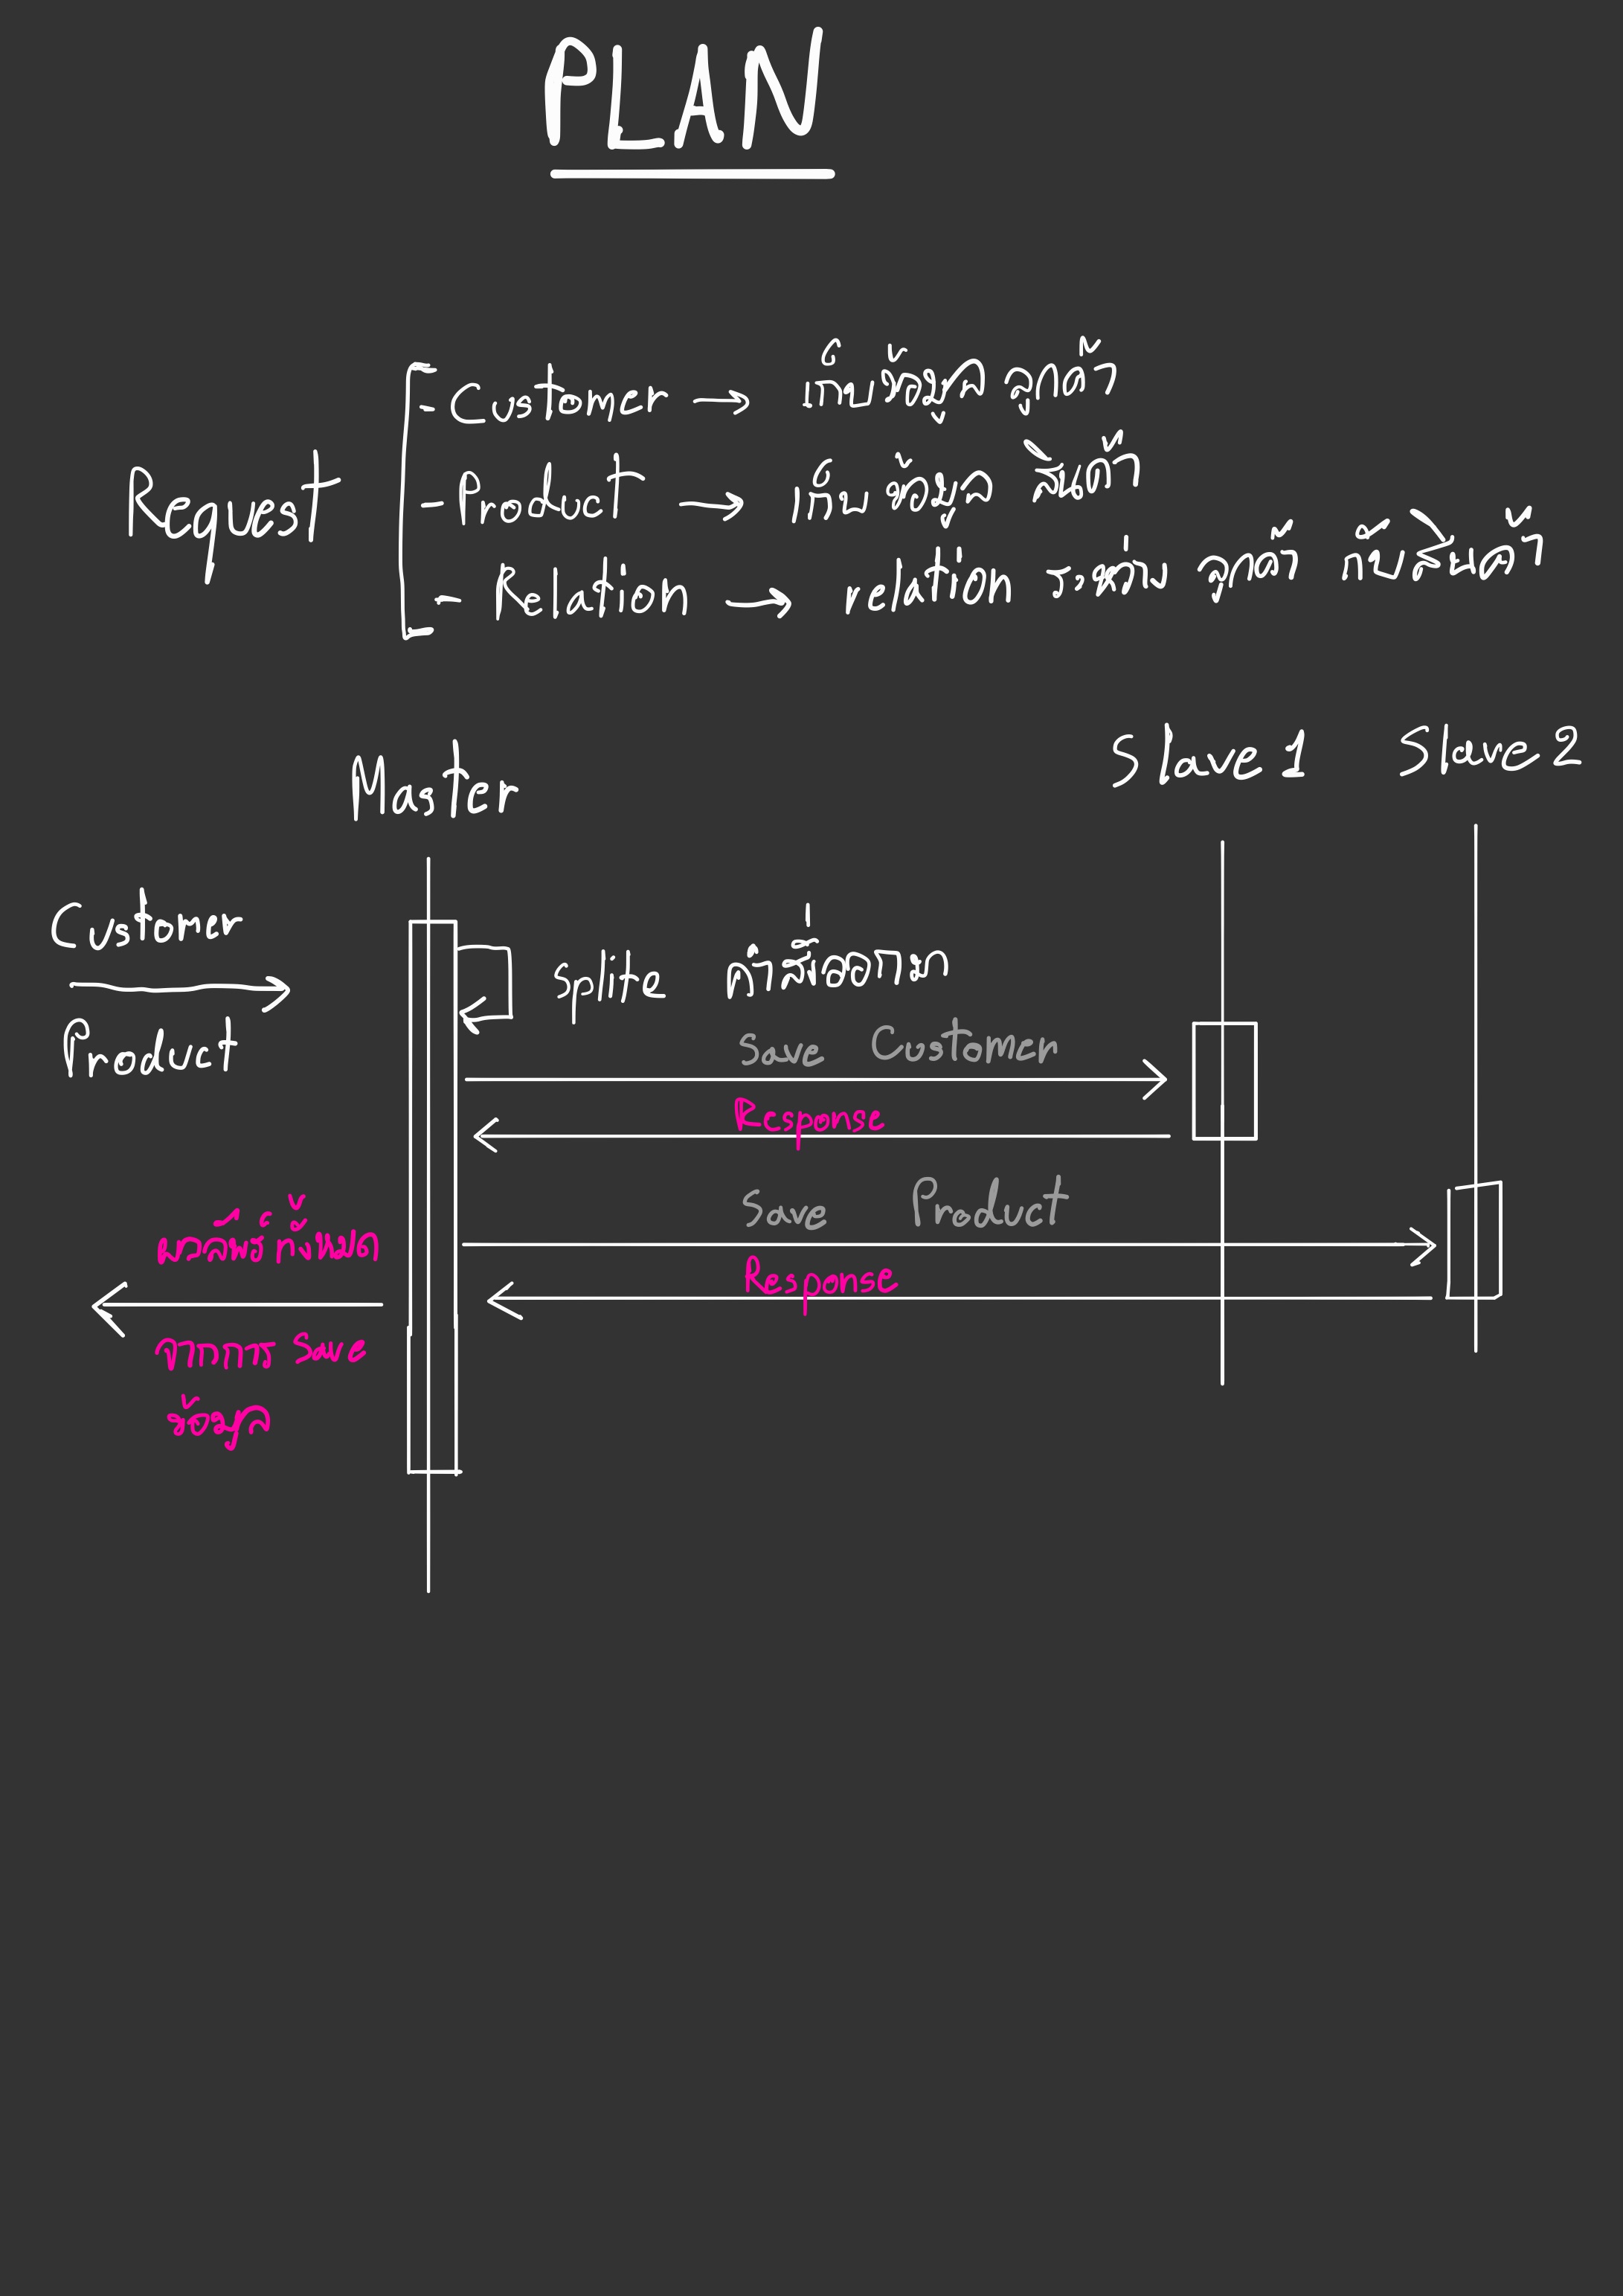 PLAN
Request
- Customer → เก็บข้อมูล ลูกค้า
- Product → เก็บ ข้อมูล สินค้า
- Relation → relation ระหว่าง ลูกค้า กับสินค้า
Master
Slave 1
Slave 2
Customer
Product
splite คำสั่งออกมา
save Customer
Response
Save Product
Response
ผลลัพธ์ ทั้งหมด
จากการ Save
ข้อมูล